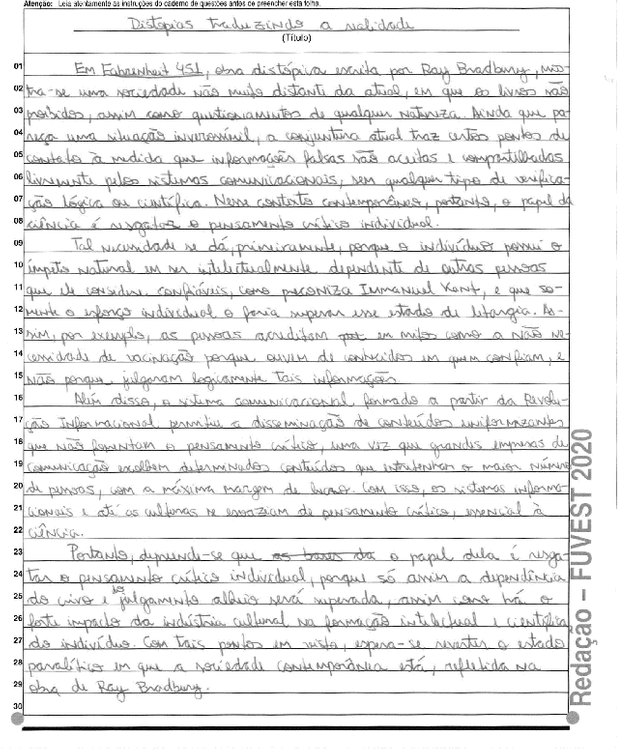 Atenção: Leia atentamente as instruções do caderno de questões antes de preencher esta folha.
Distopias traduzindo a realidade
(Título)
01 Em Fahrenheit 451, obra distópica escrita por Ray Bradbury, mos-
02 tra-se uma sociedade não muito distante da atual, em que os livros são
03 proibidos, assim como questionamentos de qualquer natureza. Ainda que pa-
04 reça uma situação inverossímil, a conjuntura atual traz certos pontos de
05 contato à medida que informações falsas são aceitas e compartilhadas
06 livremente pelos sistemas comunicacionais, sem qualquer tipo de verifica-
07 ção lógica ou científica. Nesse contexto contemporâneo, portanto, o papel da
08 ciência é resgatar o pensamento crítico individual.
09 Tal necessidade se dá, primeiramente, porque o indivíduo possui o
10 ímpeto natural em ser intelectualmente dependente de outras pessoas
11 que ele considere confiáveis, como preconiza Immanuel Kant, e que so-
12 mente o esforço individual o faria superar esse estado de letargia. As-
13 sim, por exemplo, as pessoas acreditam em mitos como a não ne-
14 cessidade de vacinação porque ouvem de conhecidos em quem confiam, e
15 não porque julgaram logicamente tais informações.
16 Além disso, o sistema comunicacional formado a partir da Revolu-
17 ção Informacional permitiu a disseminação de conteúdos uniformizantes
18 que não fomentam o pensamento crítico, uma vez que grandes empresas de
19 comunicação escolhem determinados conteúdos que entretenham o maior número
20 de pessoas, com a máxima margem de lucro. Com isso, os sistemas informa-
21 cionais e até as culturas se esvaziam de pensamento crítico, essencial à
22 ciência.
23 Portanto, depreende-se que as bases da o papel dela é resga-
24 tar o pensamento crítico individual, porque só assim a dependência
25 do crivo e do julgamento alheio será superada, assim como há o
26 forte impacto da indústria cultural na formação intelectual e científica
27 do indivíduo. Com tais pontos em vista, espera-se reverter o estado
28 paralítico em que a sociedade contemporânea está, refletida na
29 obra de Ray Bradbury.
30
Redação – FUVEST 2020